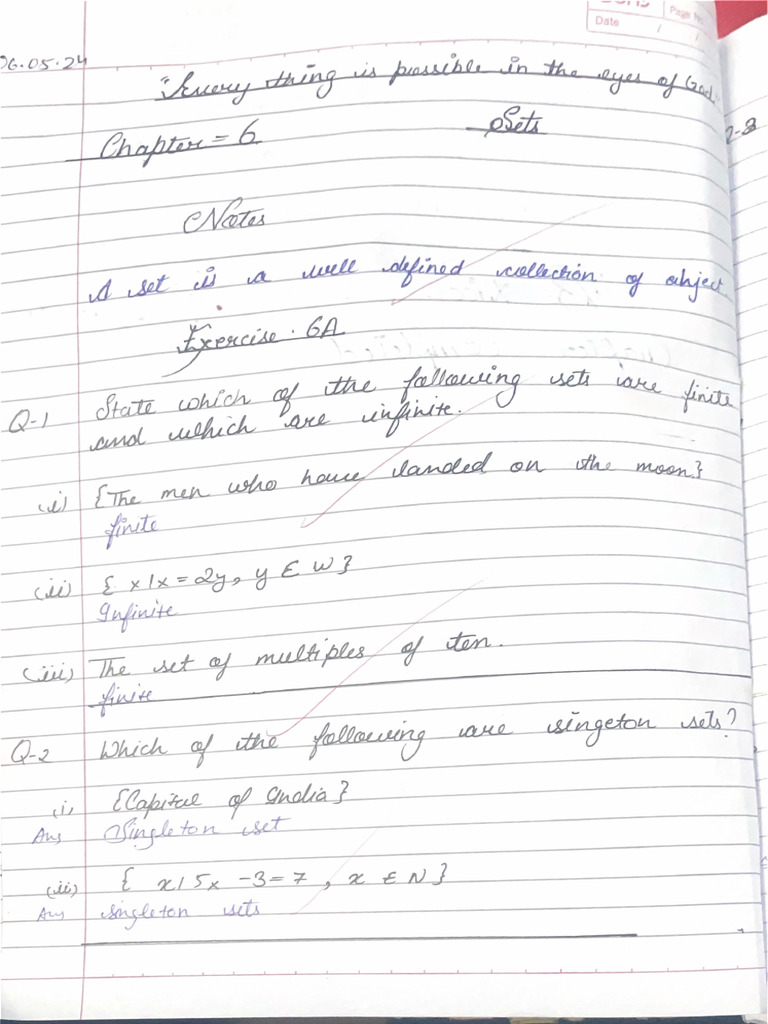 Date / /
Page No.
06.05.24
"Every thing is possible in the eyes of God."
Chapter = 6 Sets
Notes
A set is a well defined collection of object
Exercise. 6A
Q-1 State which of the following sets are finite
and which are infinite.
(i) {The men who have landed on the moon}
finite
(ii) { x|x = 2y, y ∈ W }
Infinite
(iii) The set of multiples of ten.
finite
Q-2 Which of the following are singeton sets?
(i) {Capital of India}
Ans Singleton set
(ii) { x|5x -3=7, x ∈ N }
Ans singleton sets